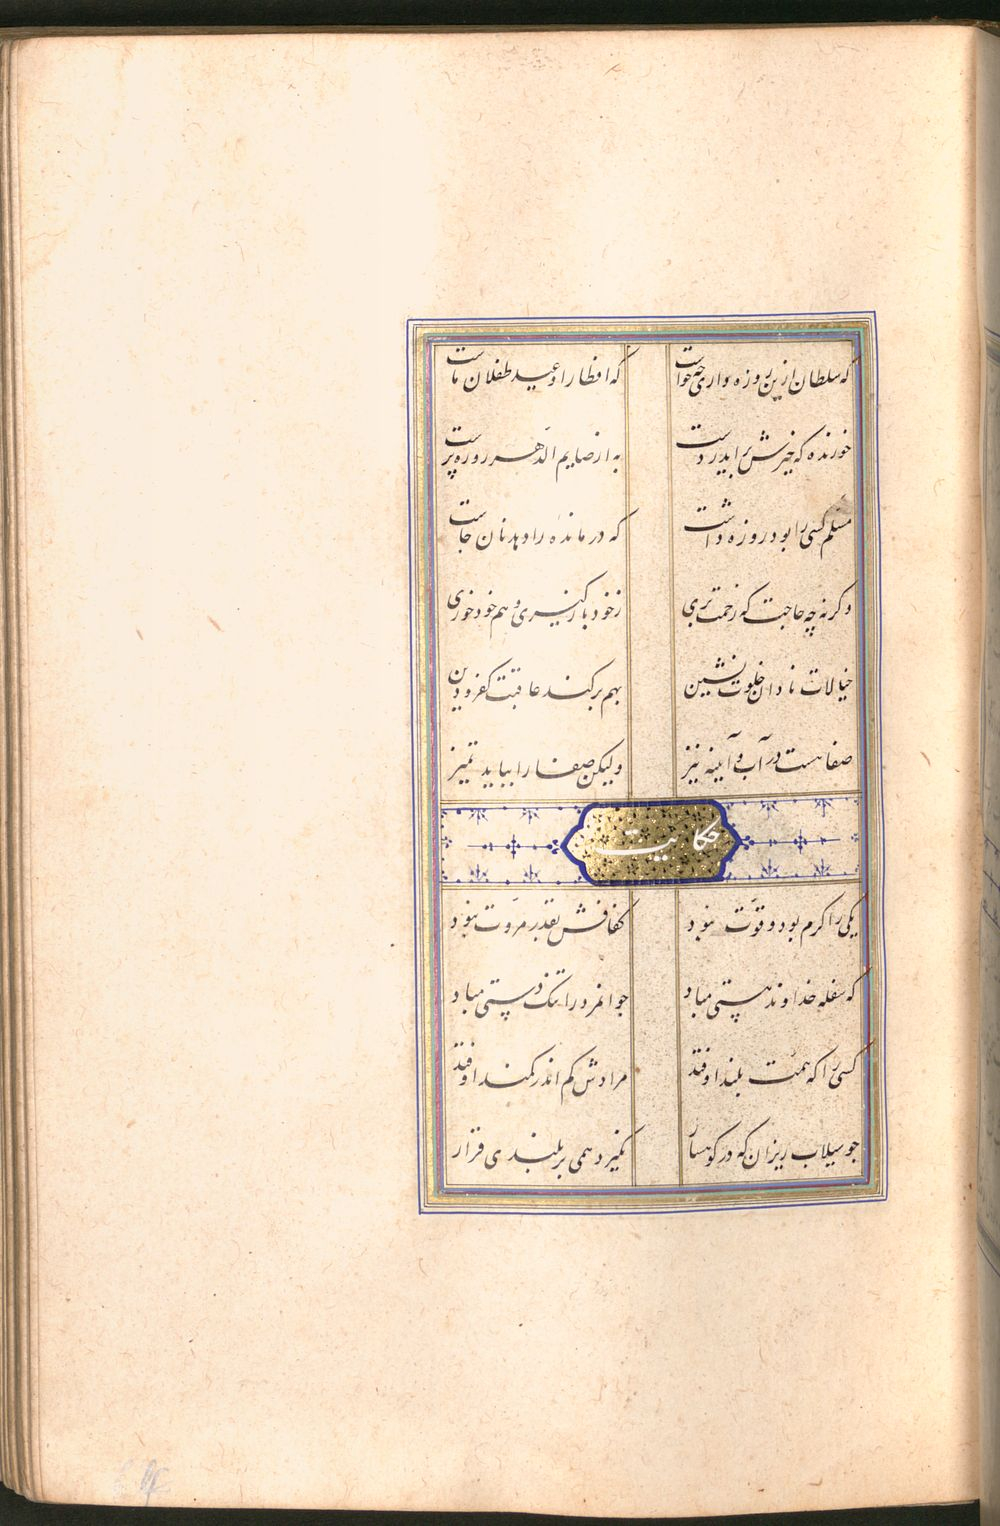 که سلطان ازین روزه داری چه خواست که افطار او عید طفلان ماست
خورنده که خیرش برآید ز دست به از صایم الدهر روزه پرست
مسلم کسی را بود روزه داشت که درمانده را دهد نان چاشت
وگرنه چه حاجت که زحمت بری ز خود بازگیری و هم خود خوری
خیالات نادان خلوت نشین بهم برکند عاقبت کفر و دین
صفا هست در آب و آیینه نیز ولیکن صفا را بباید تمیز
حکایت
یکی را کرم بود و قوت نبود کفافش بقدر مروت نبود
که سفله خداوند هستی مباد جوانمرد را تنک دستی مباد
کسی را که همت بلند اوفتد مرادش کم اندر کمند اوفتد
چو سیلاب ریزان که در کوهسار نگیرد همی بر بلندی قرار